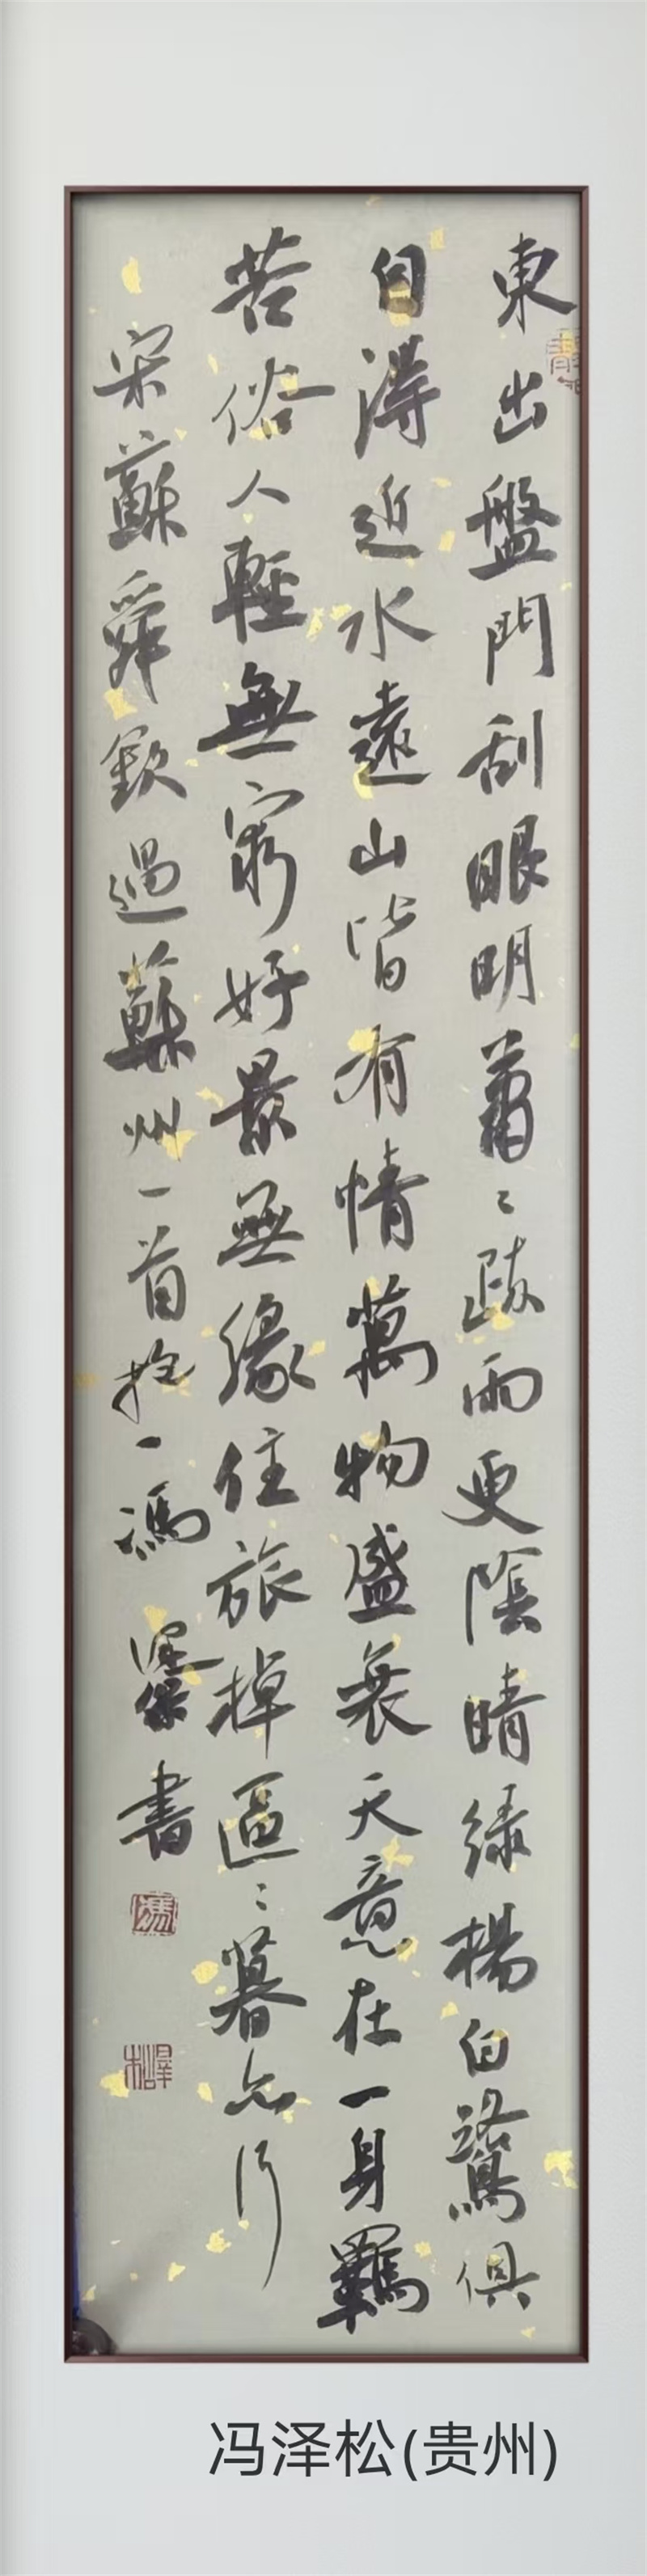 東出盤門刮眼明蕭〻疎雨更陰晴緑楊白鷺俱
自得近水遠山皆有情萬物盛衰天意在一身羈
苦俗人輕無窮好景無緣住旅棹區〻暮亦行
宋蘇舜欽過蘇州一首 馮澤松書
馮
澤松
冯泽松(贵州)